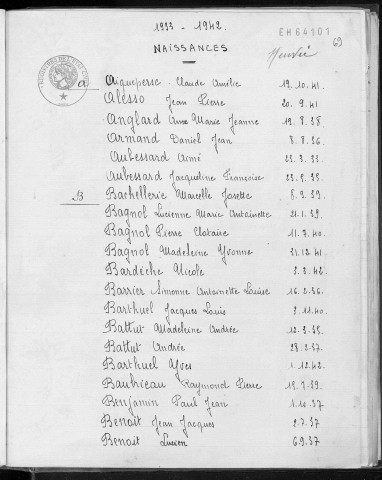 1933 - 1942.
EH64101
NAISSANCES
69
a
Aigueperse Claude Amélie 19.10.41.
Alesso Jean Pierre 20.9.41
Anglard Anne Marie Jeanne 19.8.38
Armand Daniel Jean 8.8.36
Aubessard Aimé 23.3.33.
Aubessard Jacqueline Françoise 23.5.35
B
Bachellerie Marcelle Josette 8.3.39.
Bagnol Lucienne Marie Antoinette 21.1.39.
Bagnol Pierre Clotaire 11.7.40.
Bagnol Madeleine Yvonne 31.12.41
Bardèche Nicole
Barrier Simonne Antoinette Louise 16.2.36.
Barthuel Jacques Louis 8.11.40.
Battut Madeleine Andrée 12.3.35.
Battut Andrée 28.2.37.
Barthuel Yves 1.12.42.
Raymond Pierre 15.7.39.
Benjamin Paul Jean 1.10.37
Benoit Jean Jacques 2.7.37
Benoit Lucien 6.9.37